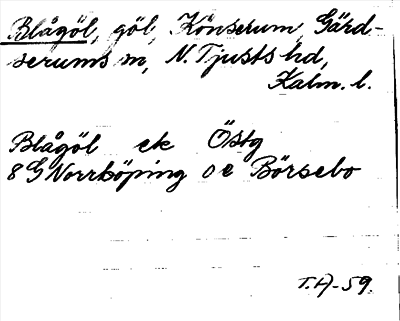 Blågöl, göl, Könserum, Gärd-
serums sn, N. Tjusts hd,
Kalm. l.
Blågöl ek Östg
8 G Norrköping 0 e Börsebo
T.A-59.